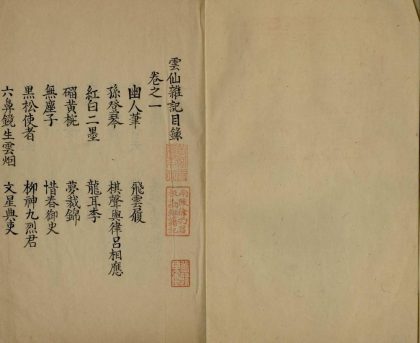 雲仙雜記目錄
卷之一
幽人筆 飛雲履
孫登琴 棋聲與律呂相應
紅白二墨 龍耳李
碯黃梡 夢裁錦
無塵子 惜春御史
黑松使者 柳神九烈君
六鼻鏡生雲烟 文星典吏